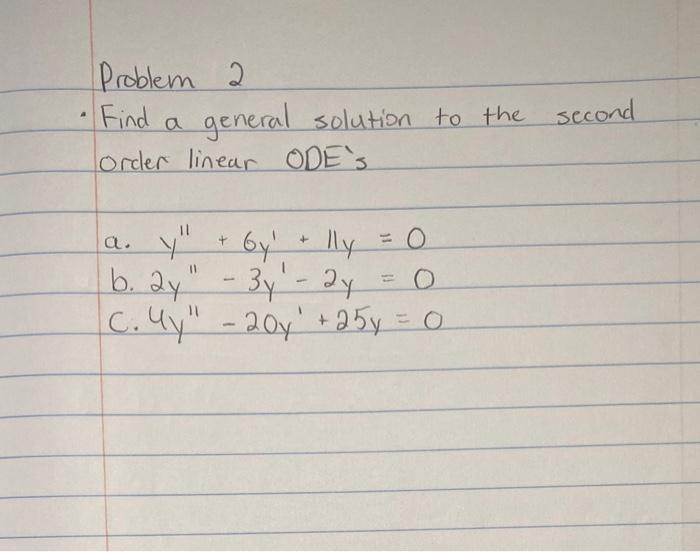 Problem 2
• Find a general solution to the second
order linear ODE's
a. y" + 6y' + 11y = 0
b. 2y" - 3y' - 2y = 0
C. 4y" - 20y' + 25y = 0